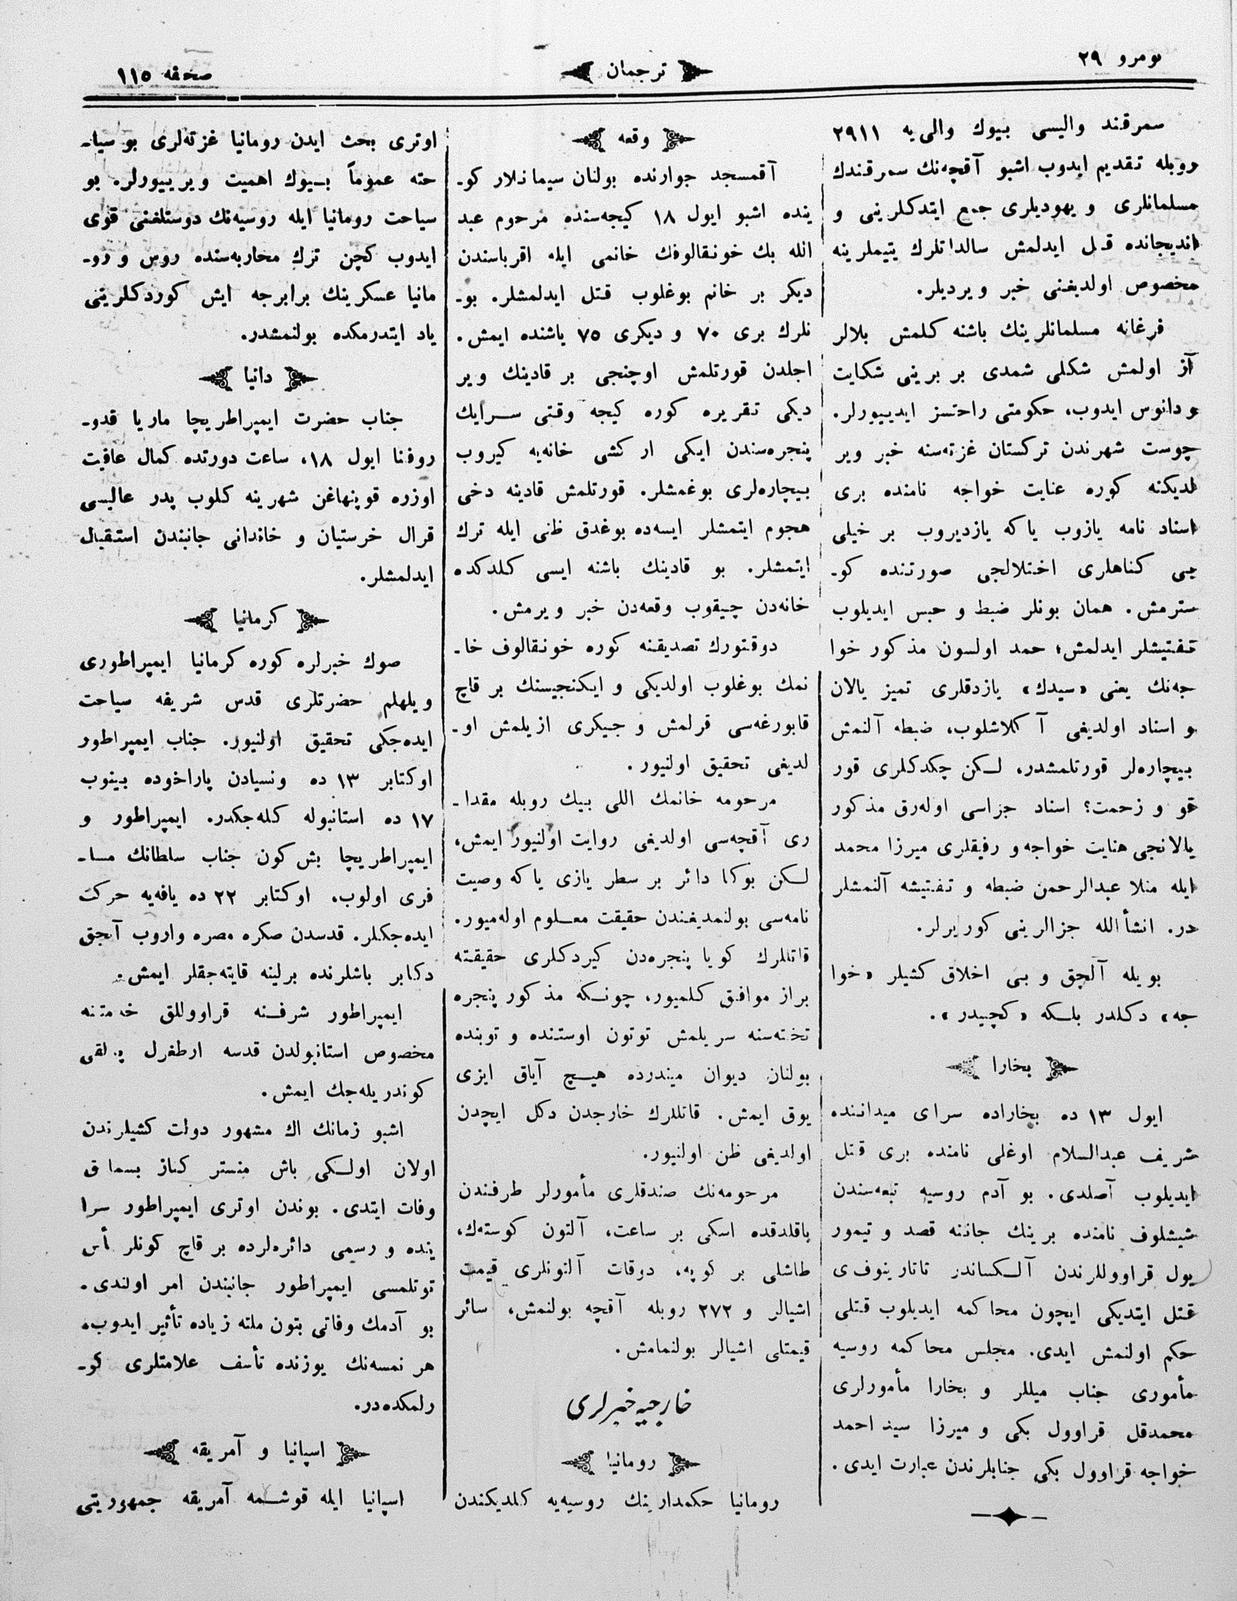 نومرو ٢٩
ترجمان
صحفه ١١٥
سمرقند والیسی بیوك والی‌یه ٢٩١١
روبله تقدیم ایدوب اشبو آقچه‌نك سمرقندك
مسلمانلری و یهودیلری جمع ایتدكلرینی و
اندیجانده قتل ایدلمش سالداتلرك یتیملرینه
مخصوص اولدیغنی خبر ویردیلر.
فرغانه مسلمانلرینك باشنه كلمش بلالر
آز اولمش شكلی شمدی بر برینی شكایت
و دانوس ایدوب، حكومتی راحتسز ایدییورلر.
چوست شهرندن تركستان غزته‌سنه خبر ویر
لدیكنه كوره عنایت خواجه نامنده بری
اسناد نامه یازوب یاكه یازدیروب بر خیلی
بی كناهلری اختلالجی صورتنده كو-
سترمش. همان بونلر ضبط و حبس ایدیلوب
تفتیشلر ایدلمش؛ حمد اولسون مذكور خوا
جه‌نك یعنی «سیدك» یازدقلری تمیز یالان
و اسناد اولدیغی آكلاشلوب، ضبطه آلنمش
بیچاره‌لر قورتلمشدر، لكن چكدكلری قور
قو و زحمت؟ اسناد جزاسی اوله‌رق مذكور
یالانجی هنایت خواجه و رفیقلری میرزا محمد
ایله منلا عبدالرحمن ضبطه و تفتیشه آلنمشلر
در. انشأالله جزالرینی كوریرلر.
بویله آلچق و بی اخلاق كشیلر «خوا
جه» دكلدر بلكه «كچیدر».
بخارا
ایول ١٣ ده بخاراده سرای میداننده
شریف عبدالسلام اوغلی نامنده بری قتل
ایدیلوب آصلدی. بو آدم روسیه تبعه‌سندن
شیشلوف نامنده برینك جاننه قصد و تیمور
یول قراووللرندن آلكساندر تاتارینوف‌ی
قتل ایتدیكی ایچون محاكمه ایدیلوب قتلی
حكم اولنمش ایدی. مجلس محاكمه روسیه
مأموری جناب میللر و بخارا مأمورلری
محمدقل قراوول بكی و میرزا سید احمد
خواجه قراوول بكی جنابلرندن عبارت ایدی.
وقعه
آقمسجد جوارنده بولنان سیمانلار كو-
ینده اشبو ایول ١٨ كیجه‌سنده مرحوم عبد
الله بك خونقالوفك خانمی ایله اقرباسندن
دیكر بر خانم بوغلوب قتل ایدلمشلر. بو-
نلرك بری ٧٠ و دیكری ٧٥ یاشنده ایمش.
اجلدن قورتلمش اوچنجی بر قادینك ویر
دیكی تقریره كوره كیجه وقتی سرایك
پنجره‌سندن ایكی ار كشی خانه‌یه كیروب
بیچاره‌لری بوغمشلر. قورتلمش قادینه دخی
هجوم ایتمشلر ایسه‌ده بوغدق ظنی ایله ترك
ایتمشلر. بو قادینك باشنه ایسی كلدكده
خانه‌دن چیقوب وقعه‌دن خبر ویرمش.
دوقتورك تصدیقنه كوره خونقالوف خا-
نمك بوغلوب اولدیكی و ایكنجیسنك بر قاچ
قابورغه‌سی قرلمش و جیكری ازیلمش او-
لدیغی تحقیق اولنیور.
مرحومه خانمك اللی بیك روبله مقدا-
ری آقچه‌سی اولدیغی روایت اولنیور ایمش،
لكن بوكا دائر بر سطر یازی یاكه وصیت
نامه‌سی بولنمدیغندن حقیقت معلوم اوله‌میور.
قاتللرك كویا پنجره‌دن كیردكلری حقیقته
براز موافق كلمیور، چونكه مذكور پنجره
تخته‌سنه سریلمش توتون اوستنده و توبنده
بولنان دیوان میندرده هیچ آیاق ایزی
یوق ایمش. قاتللرك خارجدن دكل ایچدن
اولدیغی ظن اولنیور.
مرحومه‌نك صندقلری مأمورلر طرفندن
یاقلدقده اسكی بر ساعت، آلتون كوسته‌ك،
طاشلی بر كوپه، دوقات آلتونلری قیمت
اشیالر و ٢٧٢ روبله آقچه بولنمش، سائر
قیمتلی اشیالر بولنمامش.
خارجیه خبرلری
رومانیا
رومانیا حكمدارینك روسیه‌یه كلدیكندن
اوتری بحث ایدن رومانیا غزته‌لری بو سیا-
حته عموماً بیوك اهمیت ویرییورلر. بو
سیاحت رومانیا ایله روسیه‌نك دوستلغنی قوی
ایدوب كچن ترك محاربه‌سنده روس و رو-
مانیا عسكرینك برابرجه ایش كوردكلرینی
یاد ایتدرمكده بولنمشدر.
دانیا
جناب حضرت ایمپراطریچا ماریا فدو-
روفنا ایول ١٨، ساعت دورتده كمال عافیت
اوزره قوپنهاغن شهرینه كلوب پدر عالیسی
قرال خرستیان و خاندانی جانبندن استقبال
ایدلمشلر.
كرمانیا
صوك خبرلره كوره كرمانیا ایمپراطوری
ویلهلم حضرتلری قدس شریفه سیاحت
ایده‌جكی تحقیق اولنیور. جناب ایمپراطور
اوكتابر ١٣ ده ونسیادن پاراخوده بینوب
١٧ ده استانبوله كله‌جكدر. ایمپراطور و
ایمپراطریچا بش كون جناب سلطانك مسا-
فری اولوب، اوكتابر ٢٢ ده یافه‌یه حركت
ایده‌جكلر. قدسدن صكره مصره واروب آنجق
دكابر باشلرنده برلینه قایته‌جقلر ایمش.
ایمپراطور شرفنه قراووللق خدمتنه
مخصوص استانبولدن قدسه ارطغرل پولقی
كوندریله‌جك ایمش.
اشبو زمانك اك مشهور دولت كشیلرندن
اولان اولكی باش منستر كناز بسماق
وفات ایتدی. بوندن اوتری ایمپراطور سرا
ینده و رسمی دائره‌لرده بر قاچ كونلر یأس
توتلمسی ایمپراطور جانبندن امر اولندی.
بو آدمك وفاتی بتون ملته زیاده تأثیر ایدوب،
هر نمسه‌نك یوزنده تأسف علامتلری كو-
رلمكده‌در.
اسپانیا و آمریقه
اسپانیا ایله قوشمه آمریقه جمهوریتی